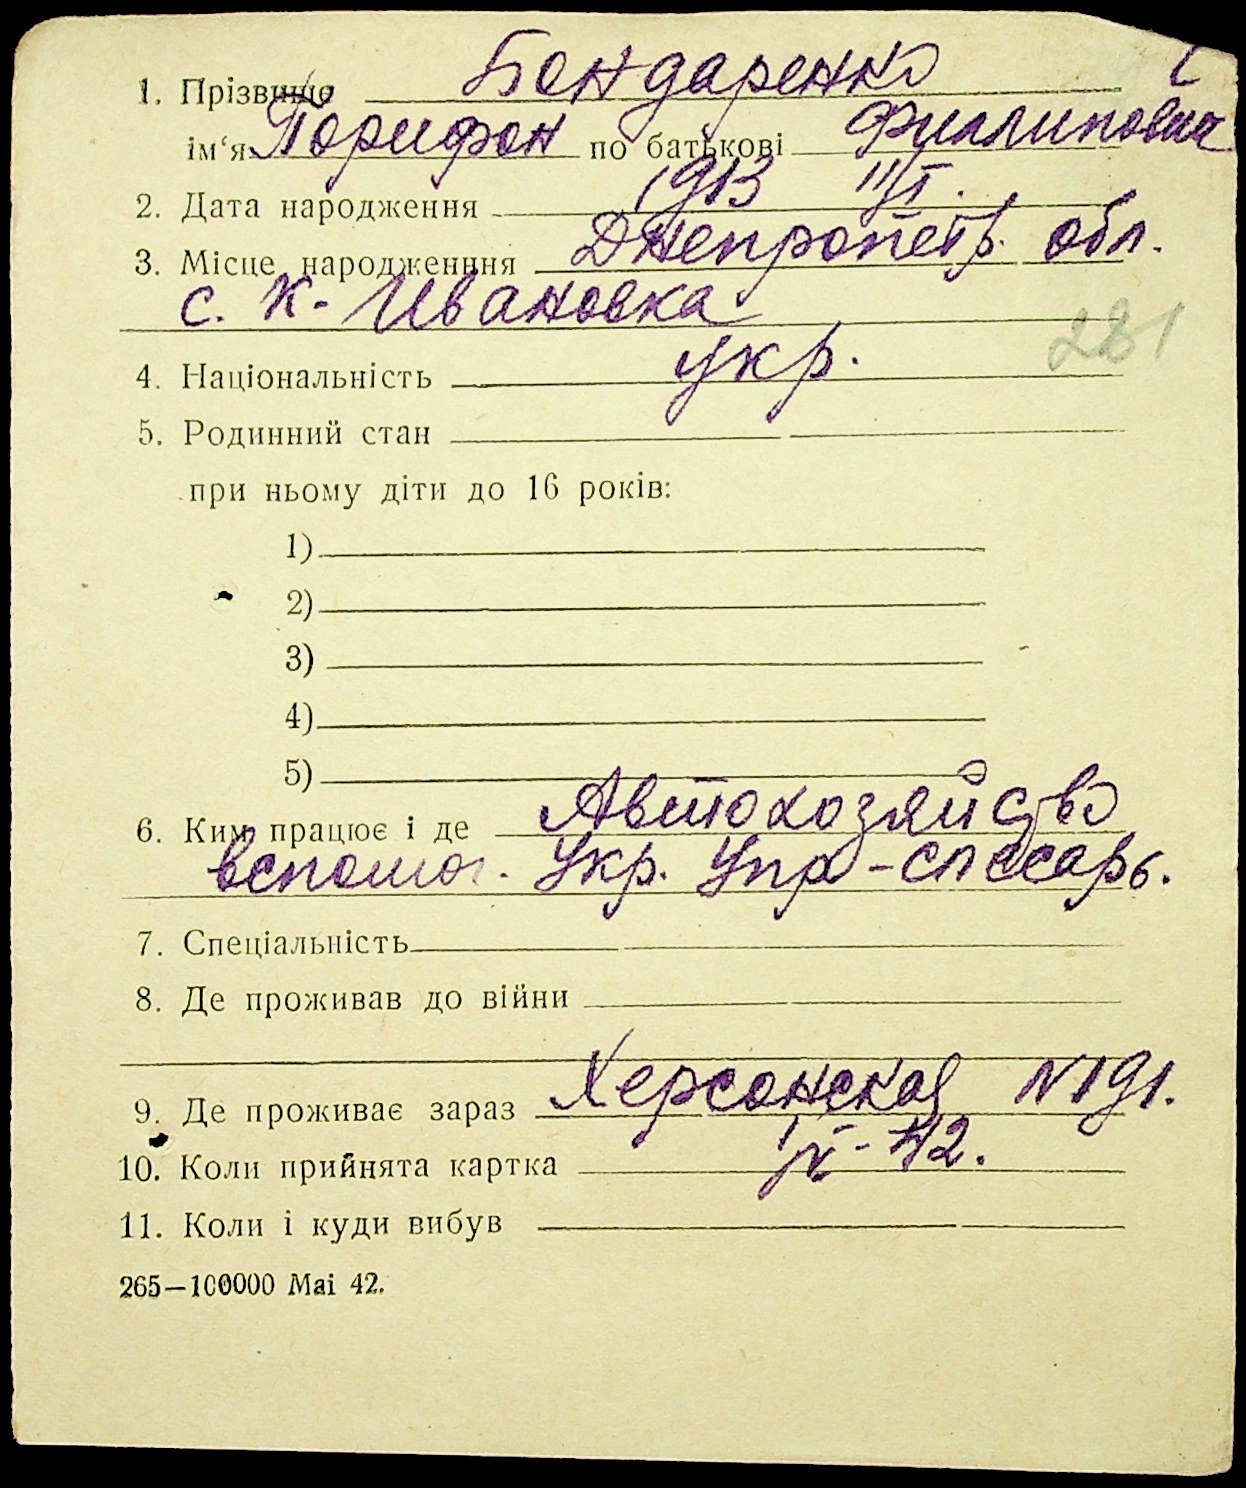 1. Прізвище Бондаренко
ім‘я Порифон по батькові Филиповна
2. Дата народження 1913
3. Місце народженння Днепропетр. обл.
с. К. Ивановка
281
4. Національність укр.
5. Родинний стан
при ньому діти до 16 років:
1)
2)
3)
4)
5)
6. Ким працює і де Автохозяйство
вспомог. Укр. Упр - слесарь.
7. Спеціальність
8. Де проживав до війни
9. Де проживає зараз Херсонская N 191.
10. Коли прийнята картка IV - 42.
11. Коли і куди вибув
265—100000 Mai 42.